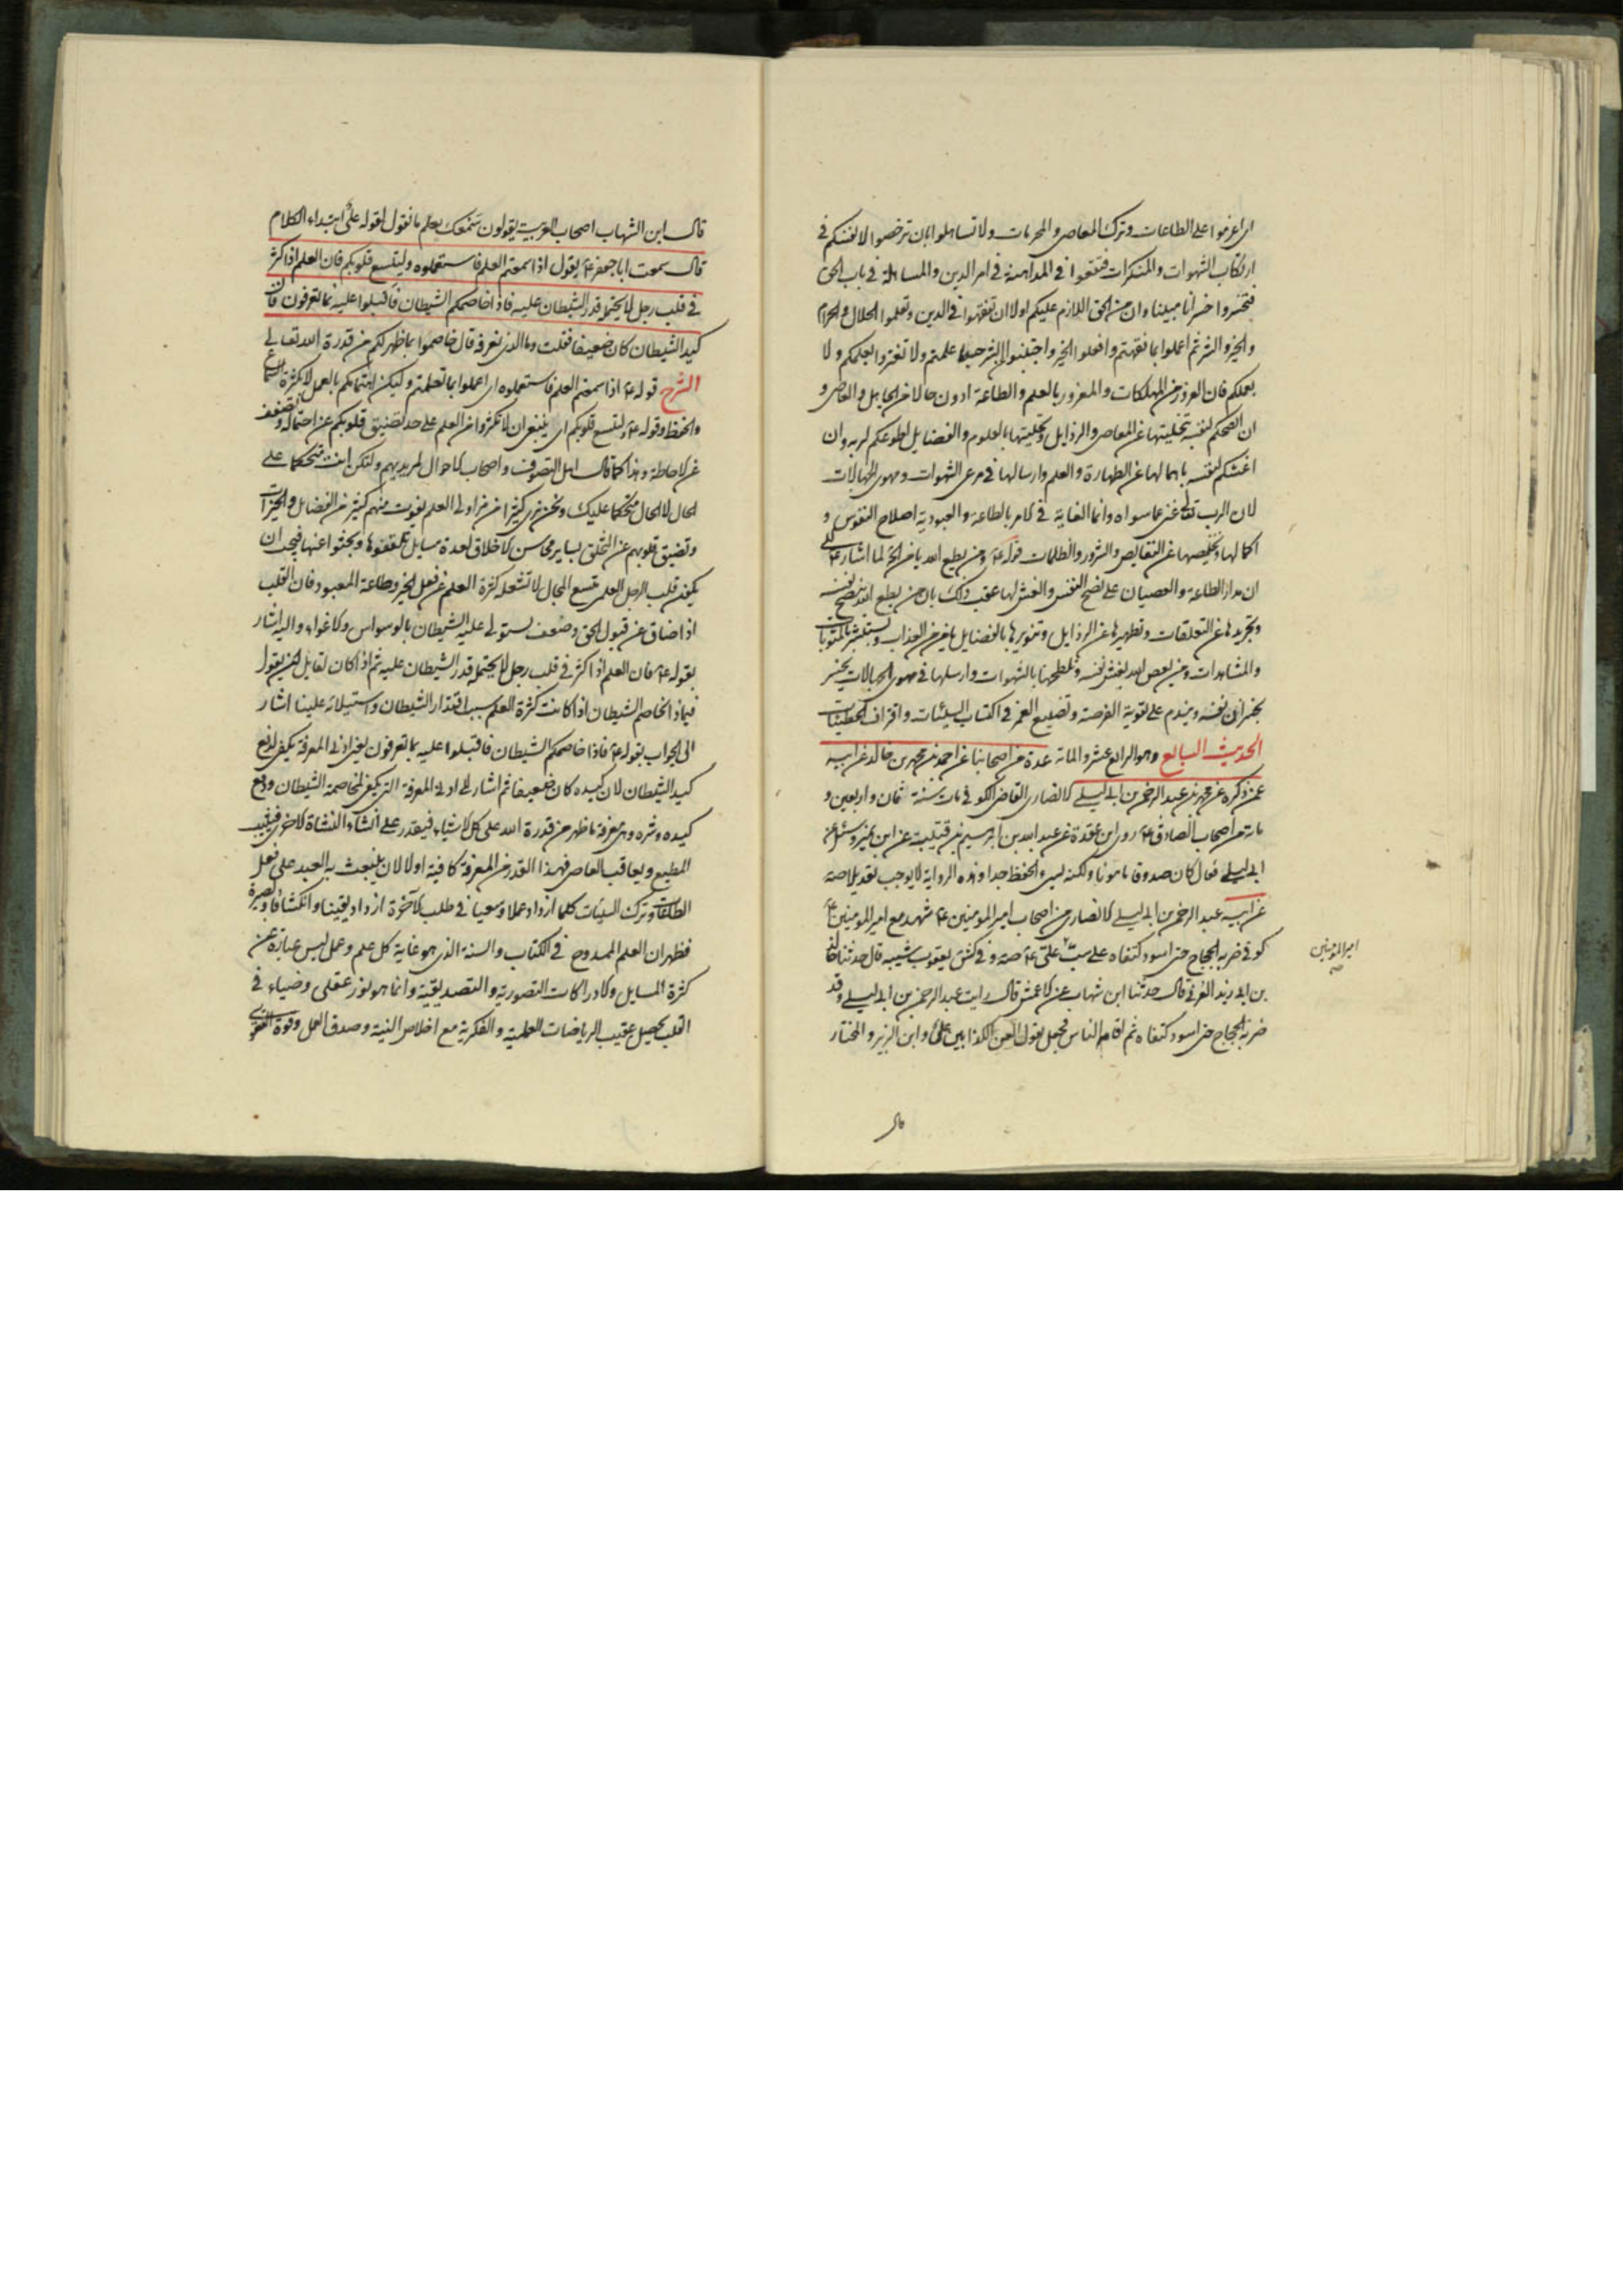 اى اعزموا على الطاعات وترك المعاصى والمحرمات ولا تساهلوا بان ترخصوا لانفسكم فى
ارتكاب الشهوات والمنكرات فتقعوا فى المداهنة فى امر الدين والمساهلة فى باب الحق
فتخسروا خسرانا مبينا وان من الحق اللازم عليكم اولا ان تفقهوا فى الدين وتعلموا الحلال والحرام
والخير والشر ثم اعملوا بما فقهتم وافعلوا الخير واجتنبوا الشر حيثما علمتم ولا تغتروا بعلمكم ولا
بعملكم فان الغرور من المهلكات والمغرور بالعلم والطاعة ادون حالا من الجاهل والعاصى و
ان انصحكم لنفسه بتخليتها عن المعاصى والرذايل وتحليتها بالعلوم والفضايل اطوعكم لربه وان
اغشكم لنفسه باهمالها عن الطهارة والعلم وارسالها فى مرعى الشهوات ومهوى الجهالات
لان الرب تعالى غنى عما سواه وانما الغاية فى الامر بالطاعة والعبودية اصلاح النفوس و
اكمالها وتخليصها عن النقايص والشرور والظلمات قوله ع ومن يطع الله يامن الخ لما اشار ع الى
ان مدار الطاعة والعصيان على نصح النفس والغش لها عقب ذلك بان من يطع الله بنصح نفسه
وتجريدها عن التعلقات وتطهيرها عن الرذايل وتنويرها بالفضايل يامن من العذاب ويستبشر بالمثوبات
والمشاهدات ومن يعص الله يغش نفسه وتلطخها بالشهوات وارسلها فى مهوى الجهالات يخسر
بخسران نفسه ويندم على تفويت الفرصة وتضييع العمر فى اكتساب السيئات واقتراف الخطيئات
الحديث السابع وهو الرابع عشر والمائة عدة من اصحابنا عن احمد بن محمد بن خالد عن ابيه
عمن ذكره عن محمد بن عبد الرحمن بن ابى ليلى الانصارى القاضى الكوفى مات سنة ثمان واربعين و
مائة من اصحاب الصادق ع روى ابن عقدة عن عبد الله بن ابراهيم بن قتيبة عن ابن نمير وسئل عن
ابى ليلى فقال كان صدوقا مامونا ولكنه سىء الحفظ جدا وهذه الرواية لا يوجب تعديلا صه
عن ابيه عبد الرحمن بن ابى ليلى الانصارى من اصحاب امير المومنين ع شهد مع امير المومنين ع
كوفى ضربه الحجاج حتى اسود كتفاه على سب على ع صه وفى كش يعقوب بن شيبه قال حدثنا خالد
امير المومنين
صه
بن ابى يزيد العرنى قال حدثنا ابن شهاب عن الاعمش قال رايت عبد الرحمن بن ابى ليلى وقد
ضربه الحجاج حتى اسود كتفاه ثم اقامه للناس فجعل يقول العن الكذابين على وابن الزبير والمختار
قال
قال ابن الشهاب اصحاب العربية يقولون سمعك يعلم ما نقول لقوله على ابتداء الكلام
قال سمعت ابا جعفر ع يقول اذا سمعتم العلم فاستعملوه وليتسع قلوبكم فان العلم اذا كثر
فى قلب رجل لا يحتمله قدر الشيطان عليه فاذا خاصمكم الشيطان فاقبلوا عليه بما تعرفون فان
كيد الشيطان كان ضعيفا فقلت وما الذى نعرفه قال خاصموا بما ظهر لكم من قدرة الله تعالى
الشرح قوله ع اذا سمعتم العلم فاستعملوه اى اعملوا بما تعلمتم وليكن اهتمامكم بالعمل لا بكثرة السماع
والحفظ وقوله ع وليتسع قلوبكم اى ينبغى ان لا تكثروا من العلم على حد تضيق قلوبكم عن احتماله وتضعف
عن الاحاطة وهذا كما قال اهل التصوف واصحاب الاحوال لمريديهم ولتكن انت متحكما على
الحال لا الحال متحكما عليك ونحن نرى كثيرا من مزاولى العلم يفوت منهم كثير من الفضايل والخيرات
وتضيق قلوبهم عن التخلق بساير محاسن الاخلاق لعدة مسايل تلقفوها وبحثوا عنها فيجب ان
يكون قلب الرجل العلمى متسع المجال لا تشغله كثرة العلم عن فعل الخير وطاعة المعبود فان القلب
اذا ضاق عن قبول الحق وضعف يستولى عليه الشيطان بالوسواس والاغواء واليه اشار
بقوله ع فان العلم اذا كثر فى قلب رجل لا يحتمله قدر الشيطان عليه ثم اذا كان لقايل ان يقول
فبماذا نخاصم الشيطان اذا كانت كثرة العلم سبب اقتدار الشيطان واستيلائه علينا اشار
الى الجواب بقوله ع فاذا خاصمكم الشيطان فاقبلوا عليه بما تعرفون يعنى ادنى المعرفة يكفى لدفع
كيد الشيطان لان كيده كان ضعيفا ثم اشار الى ادنى المعرفة التى يكفى لمخاصمة الشيطان ودفع
كيده وشره وهى معرفة ما ظهر من قدرة الله على كل الاشياء فيقدر على انشاء النشاة الاخرى فيثيب
المطيع ويعاقب العاصى فهذا القدر من المعرفة كافية اولا لان ينبعث به العبد على فعل
الطاعات وترك السيئات كلما ازداد عملا وسعيا فى طلب الآخرة ازداد يقينا وانكشافا وبصيرة
فظهر ان العلم الممدوح فى الكتاب والسنة الذى هو غاية كل علم وعمل ليس عبارة عن
كثرة المسايل والادراكات التصورية والتصديقية وانما هو نور عقلى وضياء فى
القلب يحصل عقيب الرياضات العلمية والفكرية مع اخلاص النية وصدق العمل وقوة التقوى